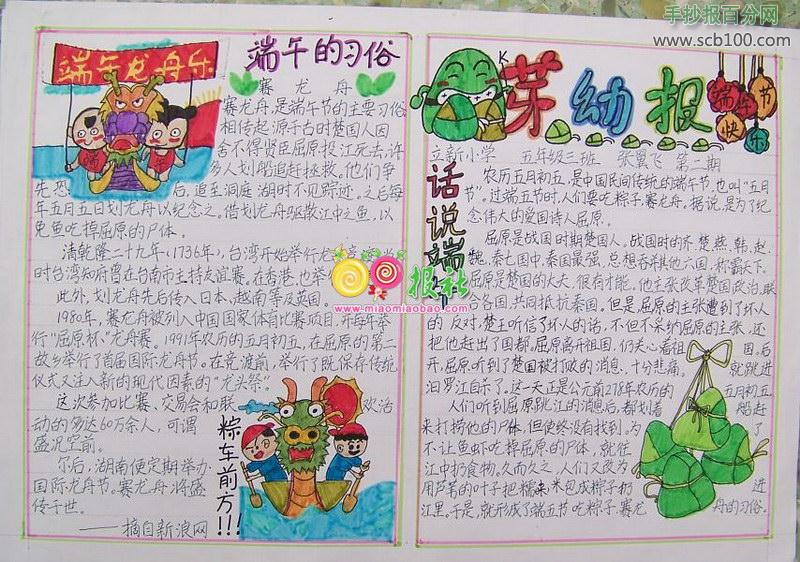 手抄报百分网
www.scb100.com
端午龙舟乐
端午
端午的习俗
赛龙舟
赛龙舟,是端午节的主要习俗
相传起源于古时楚国人因
舍不得贤臣屈原投江死去,许
多人划船追赶拯救。他们争
先恐后,追至洞庭湖时不见踪迹。之后每
年五月五日划龙舟以纪念之。借划龙舟驱散江中之鱼,以
免鱼吃掉屈原的尸体。
清乾隆二十九年(1736年),台湾开始举行龙
时台湾知府曾在台南市主持友谊赛。在香港,也举
此外,划龙舟先后传入日本、越南等及英国
1980年,赛龙舟被列入中国国家体育比赛项目,并每年举
行"屈原杯"龙舟赛。1991年农历的五月初五,在屈原的第二
故乡举行了首届国际龙舟节。在竞渡前,举行了既保存传统
仪式又注入新的现代因素的"龙头祭"。
这次参加比赛、交易会和联欢活
动的多达60万余人,可谓
盛况空前。
尔后,湖南便定期举办
国际龙舟节。赛龙舟将盛
传于世。
——摘自新浪网
粽车前方!!!
报社
www.miaomiaobao.com
芽幼报
端午节
快乐
立新小学 五年级三班 张翼飞 第二期
话说端午
农历五月初五,是中国民间传统的端午节,也叫"五月
节"。过端五节时,人们要吃粽子、赛龙舟。据说,是为了纪
念伟大的爱国诗人屈原。
屈原是战国时期楚国人。战国时的齐、楚、燕、韩、赵、
魏、秦七国中,秦国最强,总想吞并其他六国,称霸天下。
屈原是楚国的大夫,很有才能。他主张改革楚国政治,联
合各国,共同抵抗秦国。但是,屈原的主张遭到了坏人
的反对,楚王听信了坏人的话,不但不采纳屈原的主张,还
把他赶出了国都,屈原离开祖国,仍关心着祖国。后
来,屈原听到了楚国被打败的消息,十分悲痛,就跳进
汨罗江自杀了。这一天正是公元前278年农历的五月初五
人们听到屈原跳江的消息后,都划着船赶了
来打捞他的尸体,但使终没有找到。为了
不让鱼虾吃掉屈原的尸体,就往
江中扔食物。久而久之,人们又改为
用芦苇的叶子把糯米包成粽子扔进
江里。于是,就形成了端五节吃粽子、赛龙舟的习俗。